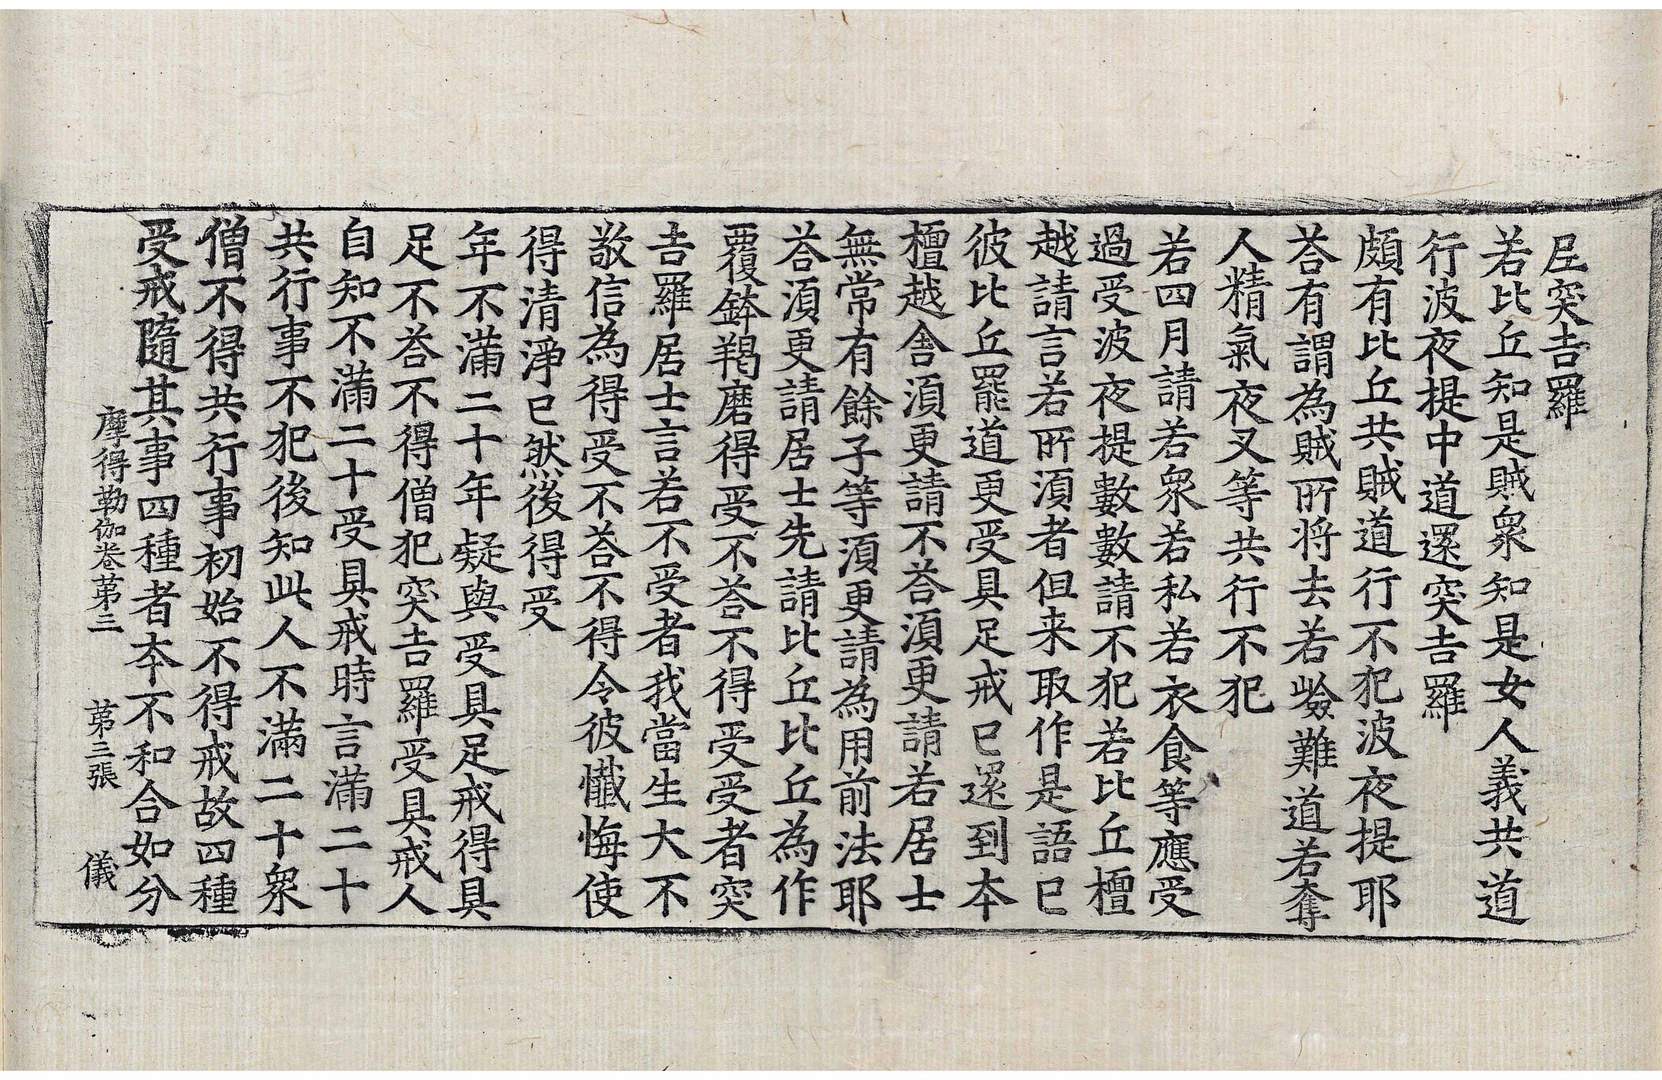 𡰱突吉羅
若比丘知是賊衆知是女人義共道
行波夜提中道還突吉羅
頗有比丘共賊道行不犯波夜提耶
荅有謂為賊所将去若嶮難道若奪
人精氣夜叉等共行不犯
若四月請若衆若私若衣食等應受
過受波夜提數數請不犯若比丘檀
越請言若所湏者但来取作是語已
彼比丘罷道更受具足戒已還到夲
檀越舎湏更請不荅湏更請若居士
無常有餘子等湏更請為用前法耶
荅湏更請居士先請比丘比丘為作
覆鉢羯磨得受不荅不得受受者突
吉羅居士言若不受者我當生大不
敬信為得受不荅不得令彼懺悔使
得清淨已然後得受
年不滿二十年疑與受具足戒得具
足不荅不得僧犯突吉羅受具戒人
自知不滿二十受具戒時言滿二十
共行事不犯後知此人不滿二十衆
僧不得共行事初始不得戒故四種
受戒隨其事四種者夲不和合如分
摩得勒伽卷第三　第三張　儀